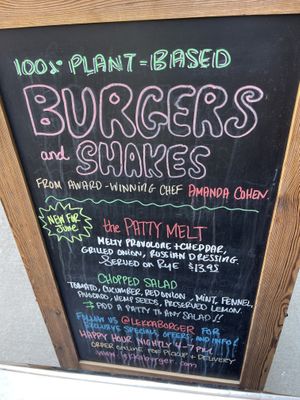 100% PLANT-BASED
BURGERS
and SHAKES
FROM AWARD-WINNING CHEF AMANDA COHEN.
NEW FOR
June
the PATTY MELT
MELTY PROVOLONE + CHEDDAR,
GRILLED ONION, RUSSIAN DRESSING.
SERVED ON RYE $13.95
CHOPPED SALAD
TOMATO, CUCUMBER, RED ONION, MINT, FENNEL,
AVOCADO, HEMP SEEDS, PRESERVED LEMON.
ADD A PATTY TO ANY SALAD!!
FOLLOW US @LEKKABURGER FOR
EXCLUSIVE SPECIALS, OFFERS, AND INFO!
HAPPY HOUR NIGHTLY 4-7PM
ORDER ONLINE FOR PICKUP + DELIVERY
www.lekkaburger.com